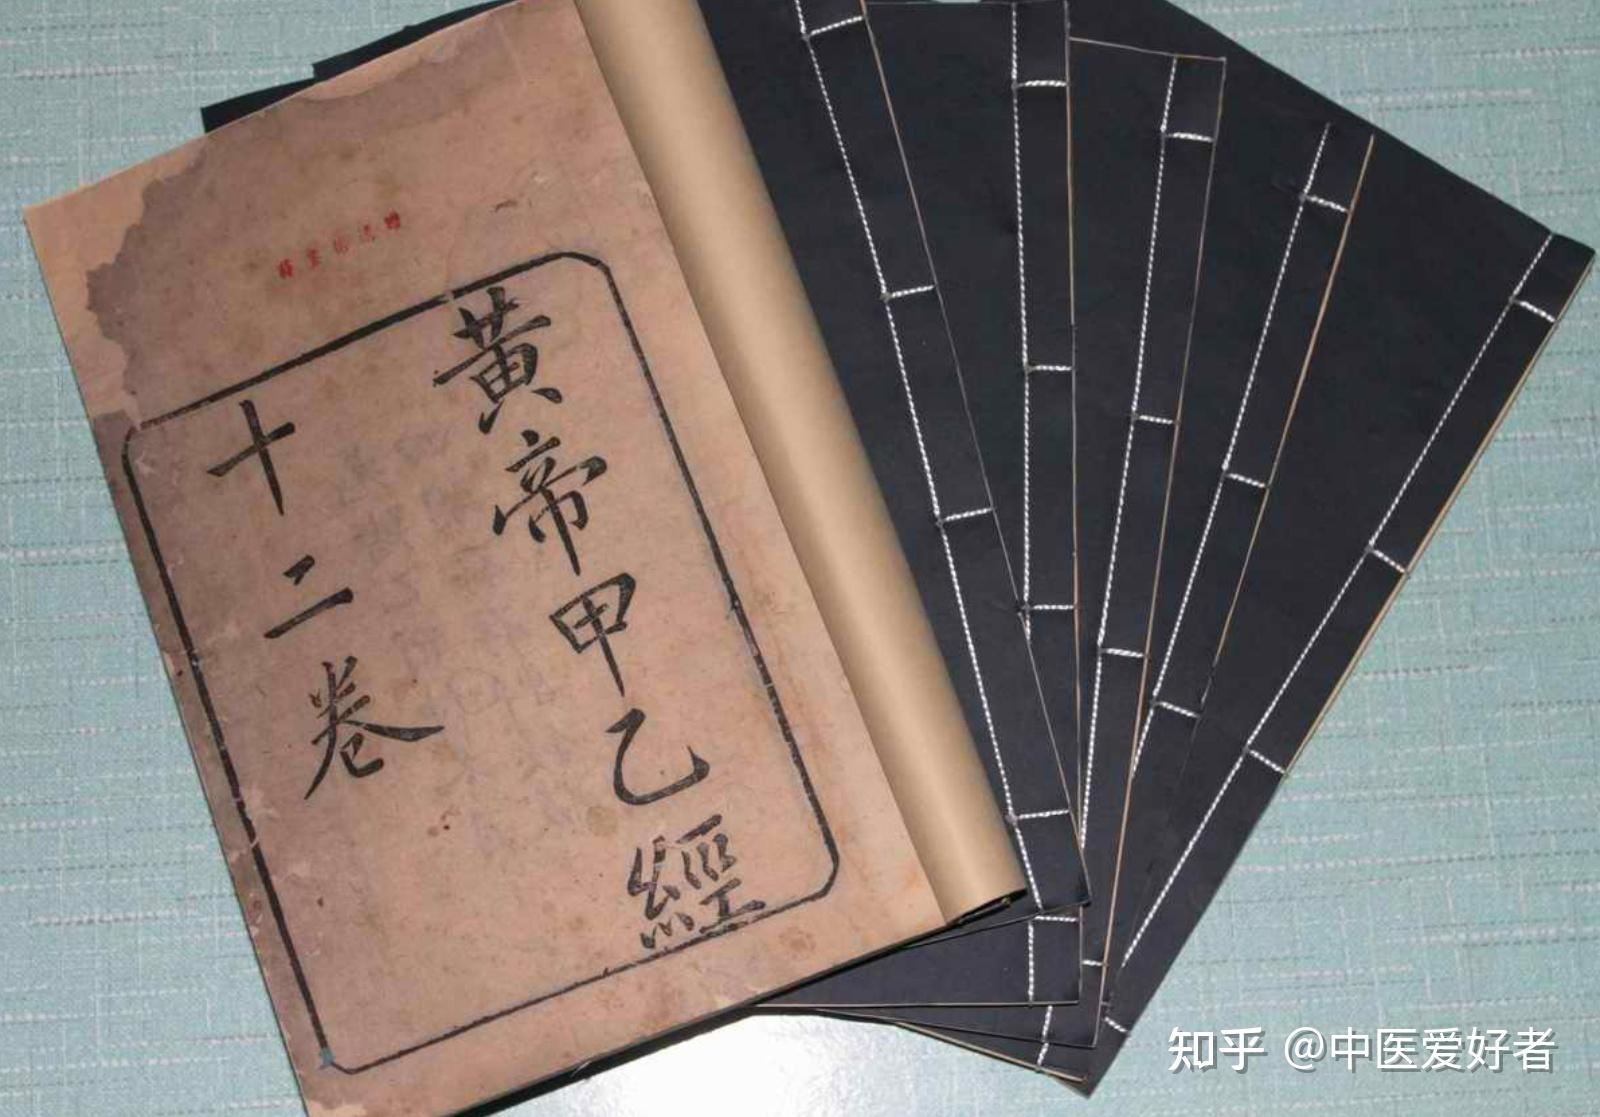 黃帝甲乙經
十二卷
知乎 @中医爱好者